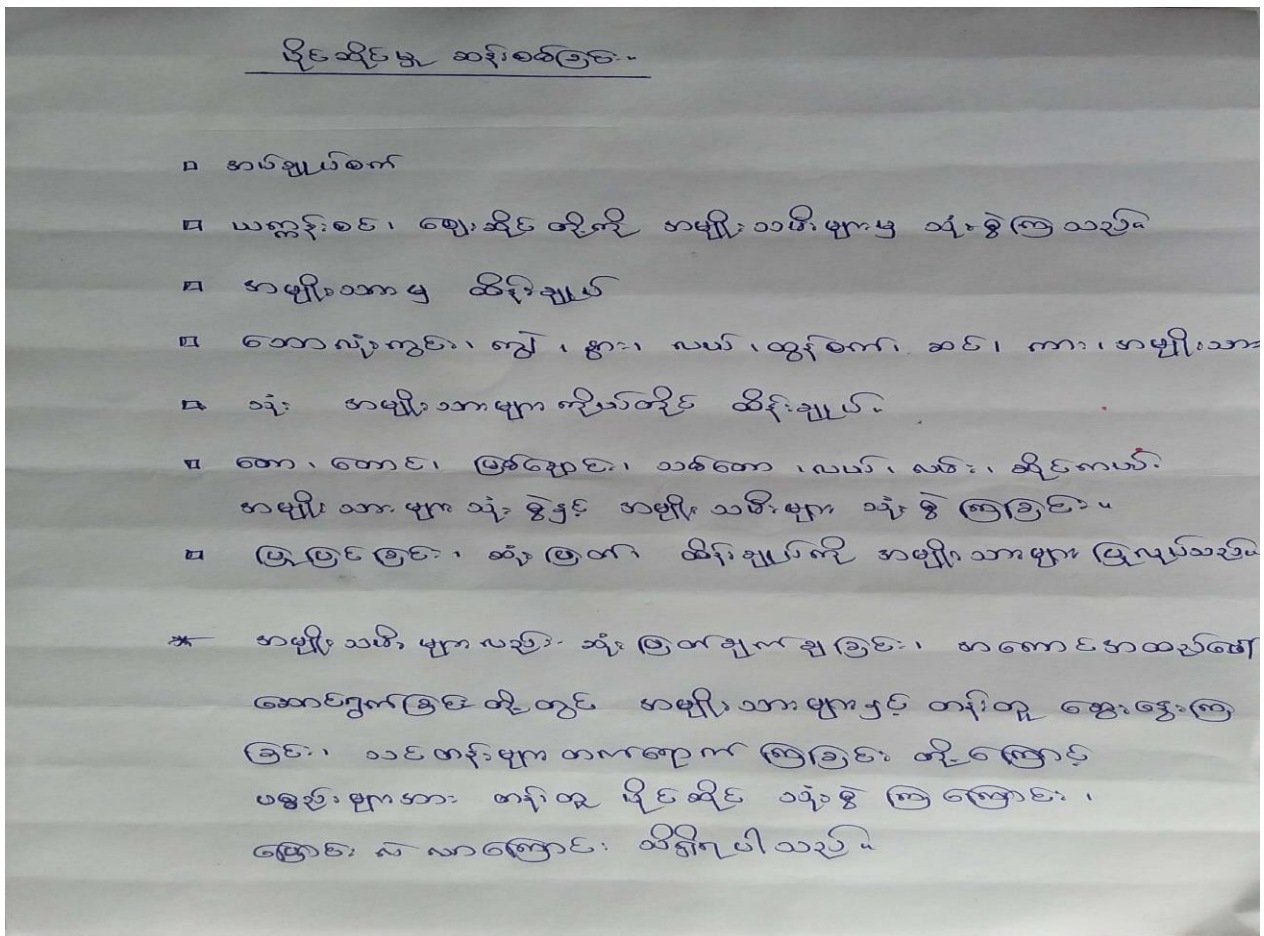 ပိုင်ဆိုင်မှု ဆန်းစစ်ခြင်း။
အပ်ချုပ်စက်
ယက္ကန်းစင်၊ ဈေးဆိုင် တို့ကို အမျိုးသမီးများမှ သုံးစွဲကြသည်။
အမျိုးသားမှ ထိန်းချုပ်
ဘောလုံးကွင်း၊ ကျွဲ၊ နွား၊ လယ်၊ ထွန်စက်၊ ဆင်၊ ကား၊ အမျိုးသား
သုံး အမျိုးသားများ ကိုယ်တိုင် ထိန်းချုပ်။
တော၊ တောင်၊ မြစ်ချောင်း၊ သစ်တော၊ လယ်၊ လမ်း၊ ဆိုင်ကယ်၊
အမျိုးသားများ သုံးစွဲနှင့် အမျိုးသမီးများ သုံးစွဲကြခြင်း။
ပြုပြင်ခြင်း၊ ဆုံးဖြတ်၊ ထိန်းချုပ်ကို အမျိုးသားများ ပြုလုပ်သည်။
* အမျိုးသမီးများလည်း ဆုံးဖြတ်ချက်ချခြင်း၊ အကောင်အထည်ဖော်
ဆောင်ရွက်ခြင်းတို့တွင် အမျိုးသားများနှင့် တန်းတူ ဆွေးနွေးကြ
ခြင်း၊ သင်တန်းများ တက်ရောက်ကြခြင်း တို့ကြောင့်
ပစ္စည်းများအား တန်းတူ ပိုင်ဆိုင် သုံးစွဲကြကြောင်း၊
ပြောင်းလဲလာကြောင်း သိရှိရပါသည်။